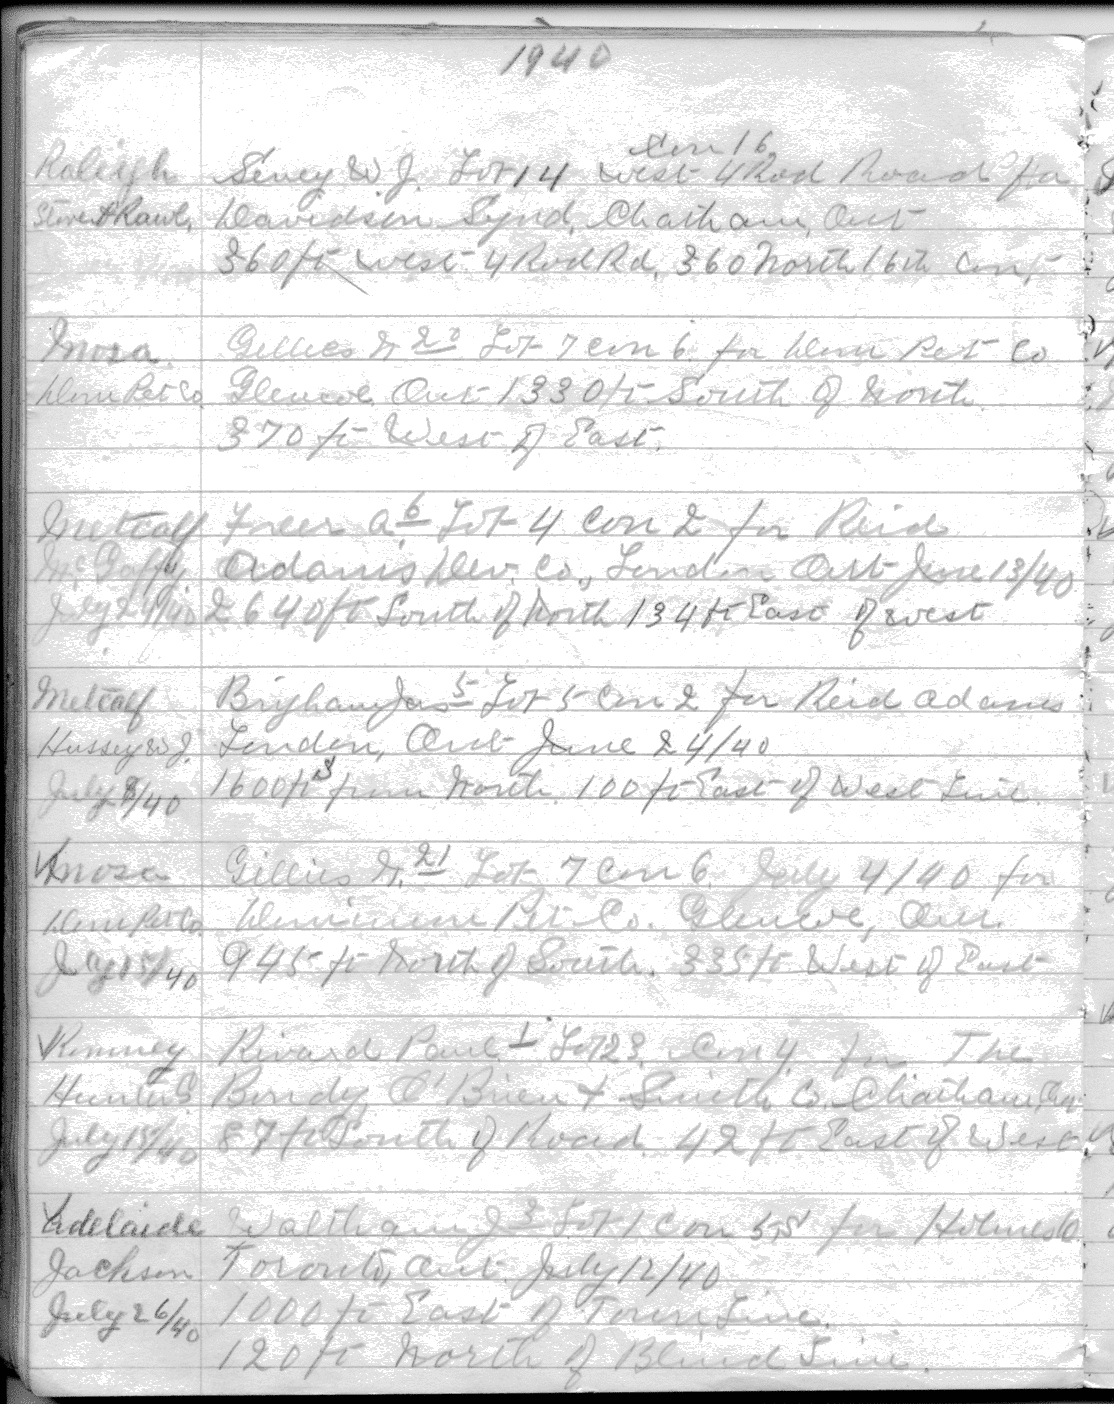 1940
Con 16
Raleigh Sevey W. J. Lot 14 West 4 Rod Road for
Davidson Synd. Chatham, Ont
360 ft West 4 Rod Rd. 360 North 16th Con.
Mosa Gillies N 20 Lot 7 Con 6 for Dom Pet Co
Dom Pet Co. Glencoe Ont 1330 ft South of North
370 ft West of East.
Metcalf A. 6 Lot 4 Con 2 for Reid
Adams Dev. Co., London Ont June 13/40
July 24/40 2640 ft South of North 134 ft East of West
Metcalf Brigham Jas 5 Lot 5 Con 2 for Reid Adams
Hussey W. J. London, Ont June 24/40
July 8/40 1600 ft S from North 100 ft East of West Line.
Mosa Gillies N. 21 Lot 7 Con 6. July 4/40 for
Dom Pet Co. Dominion Pet Co. Glencoe, Ont.
945 ft North of South. 335 ft West of East
Romney Rivard Paul 1 Lot 23, Con 4 for The
Hunter Bondy O'Brien + Smith Co. Chatham, Ont
July 15/40 87 ft South of Road 42 ft East of West
Adelaide Waltham J 3 Lot 1 Con 5 S for Holmes
Jackson Toronto, Ont July 12/40
July 26/40 1000 ft East of Town Line.
120 ft North of Blind Line.